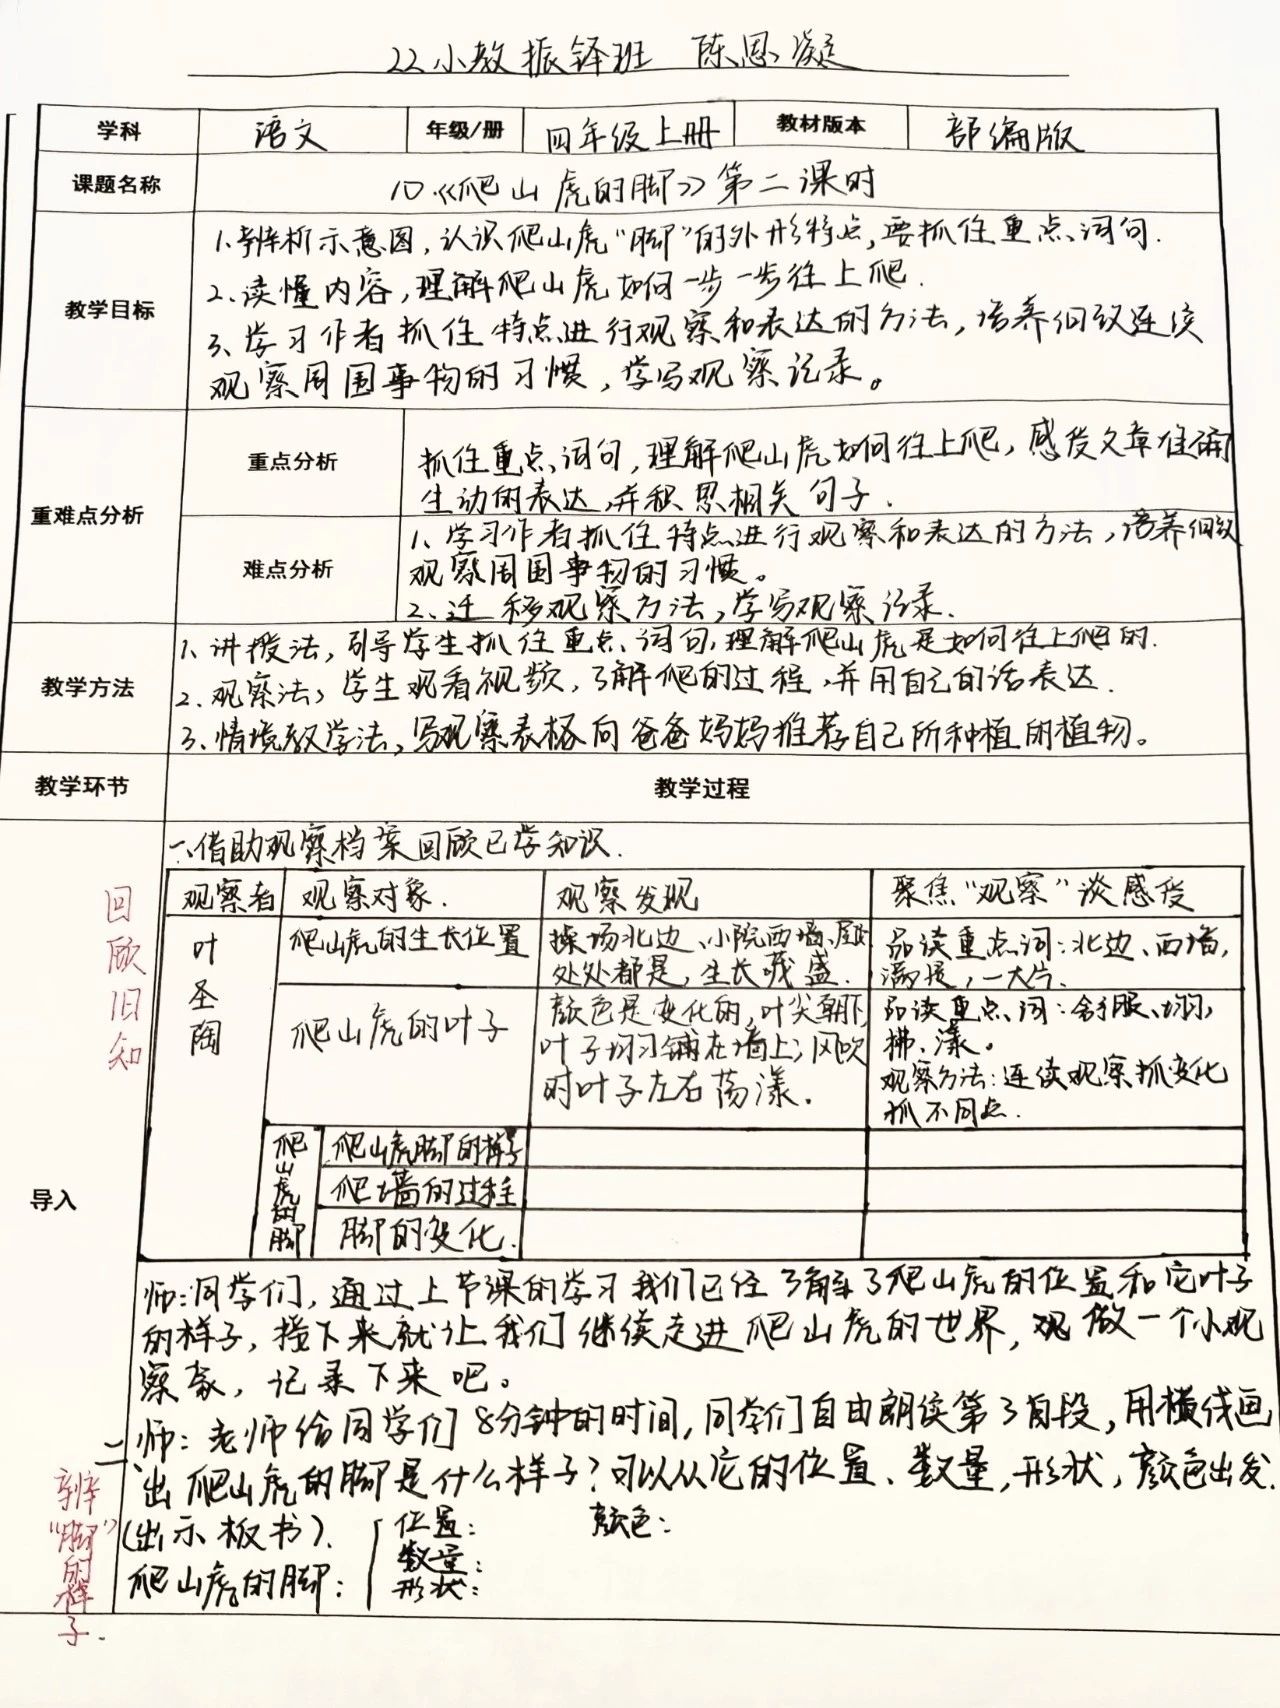 22小教振铎班 陈思凝
学科 语文 年级/册 四年级上册 教材版本 部编版
课题名称 10.《爬山虎的脚》第二课时
教学目标
1、辨析示意图，认识爬山虎“脚”的外形特点，要抓住重点词句.
2、读懂内容，理解爬山虎如何一步一步往上爬.
3、学习作者抓住特点进行观察和表达的方法，培养细致连续
观察周围事物的习惯，学写观察记录。
重难点分析
重点分析
抓住重点词句，理解爬山虎如何往上爬，感受文章准确
生动的表达，并积思相关句子.
难点分析
1、学习作者抓住特点进行观察和表达的方法，培养细致
观察周围事物的习惯。
2、迁移观察方法，学写观察记录.
教学方法
1、讲授法，引导学生抓住重点词句，理解爬山虎是如何往上爬的.
2、观察法，学生观看视频，了解爬的过程，并用自己的话表达.
3、情境教学法，写观察表格向爸爸妈妈推荐自己所种植的植物。
教学环节 教学过程
导入
回顾旧知
一、借助观察档案回顾已学知识.
观察者 观察对象. 观察发现 聚焦“观察”谈感受
叶圣陶
爬山虎的生长位置
操场北边、小院西墙、
处处都是，生长茂盛.
品读重点词：北边、西墙，
满是，一大片.
爬山虎的叶子
颜色是变化的，叶尖朝下，
叶子均匀铺在墙上；风吹
时叶子左右荡漾.
品读重点词：舒服、均匀，
拂、漾。
观察方法：连续观察抓变化
抓不同点.
爬山虎的脚
爬山虎脚的样子
爬墙的过程
脚的变化.
师：同学们，通过上节课的学习我们已经了解了爬山虎的位置和它叶子
的样子，接下来就让我们继续走进爬山虎的世界，观做一个小观
察家，记录下来吧。
二、师：老师给同学们8分钟的时间，同学们自由朗读第3自段，用横线画
出爬山虎的脚是什么样子？可以从它的位置、数量，形状，颜色出发.
辨“脚”的样子.
(出示板书).
爬山虎的脚：
位置： 颜色：
数量：
形状：